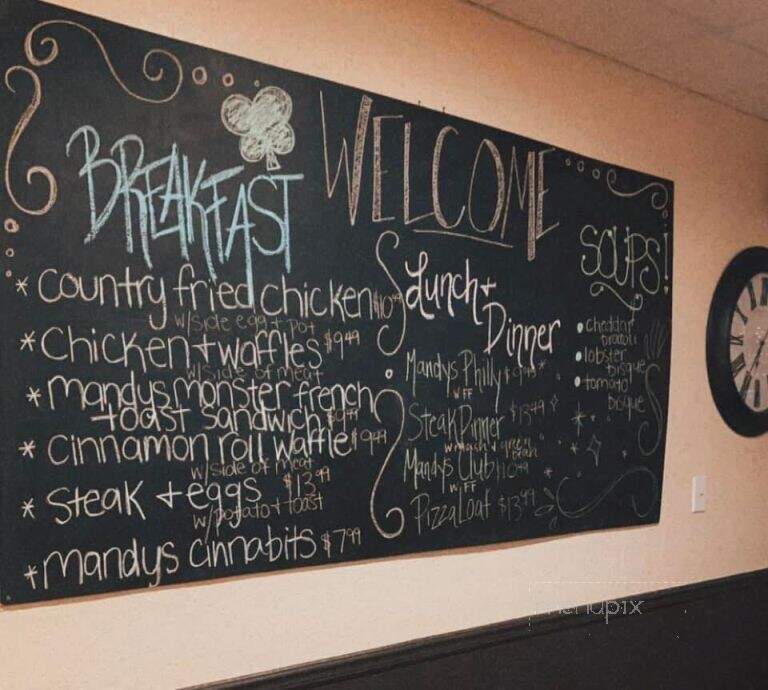 WELCOME
BREAKFAST
* Country fried chicken $10.99
w/side egg + pot
* Chicken + waffles $9.49
w/side of meat
* mandys monster french
toast sandwich $9.49
* cinnamon roll waffle $9.49
w/side of meat
* Steak + eggs $13.99
w/potato + toast
* mandys cinnabits $7.99
Lunch +
Dinner
Mandys Philly $9.99
w FF
Steak Dinner $13.49
w mash + green
bean
Mandys Club 10.99
w FF
Pizza Loaf $13.99
SOUPS!
• cheddar
broccoli
• lobster
bisque
• tomato
bisque
menupix